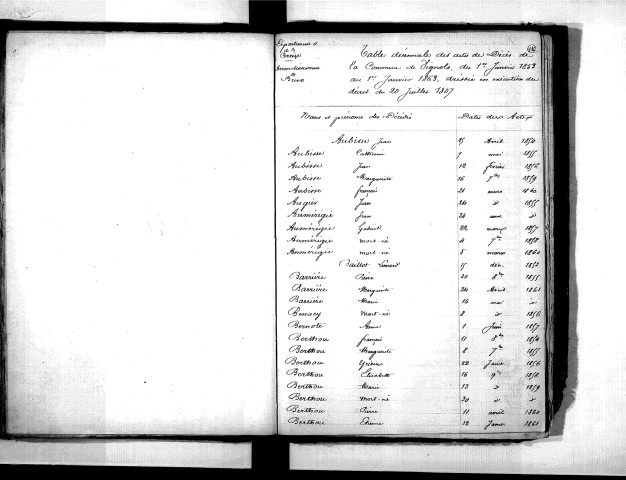 Département
de la
Corrèze
Arrondissement
de
Brive
Table décennale des actes de Décès de
la Commune de Vignols, du 1er Janvier 1853
au 1er Janvier 1863, dressée en exécution du
décret du 20 Juillet 1807
Noms et prénoms des Décédés Dates des Actes
Aubisse Jean 25 Avril 1850
Aubisse Catherine 7 mai 1855
Aubisse Jean 12 février 1856
Aubisse Marguerite 16 7bre 1859
Aubisse françois 21 mars 1860
Augier Jean 24 d 1855
Auméregie Jean 24 d
Auméregie Gabriel 22 mars 1857
Auméregie mort-né 4 7bre 1858
Auméregie mort-né 5 mars 1860
Baillot Léonard 15 déc. 1853
Barrière 20 8bre 1855
Barrière Marguerite 24 Avril 1855
Barrière Marie 16 mai d
Benacy mort-né 8 d 1856
Bernote 1 Juin 1857
Berthou françois 11 8bre
Berthou Marguerite 8 7bre 1855
Berthou 22 Janv. 1856
Berthou Elisabeth 16 9bre 1858
Berthou Marie 13 d 1859
Berthou mort-né 30 d d
Berthou Pierre 11 avril 1860
Berthou Etienne 12 Janv. 1861